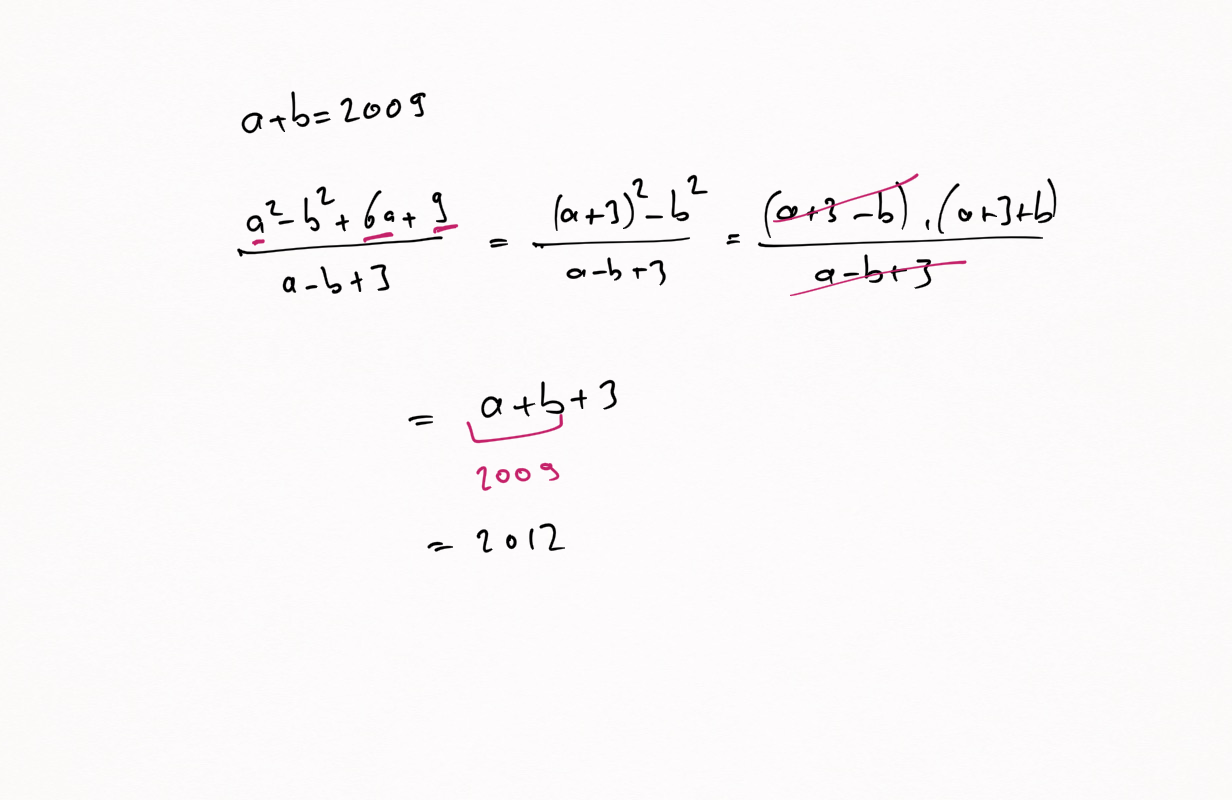 a+b=2009
(a²-b²+6a+9)/(a-b+3) = ((a+3)²-b²)/(a-b+3) = ((a+3-b).(a+3+b))/(a-b+3)
= a+b+3
2009
= 2012